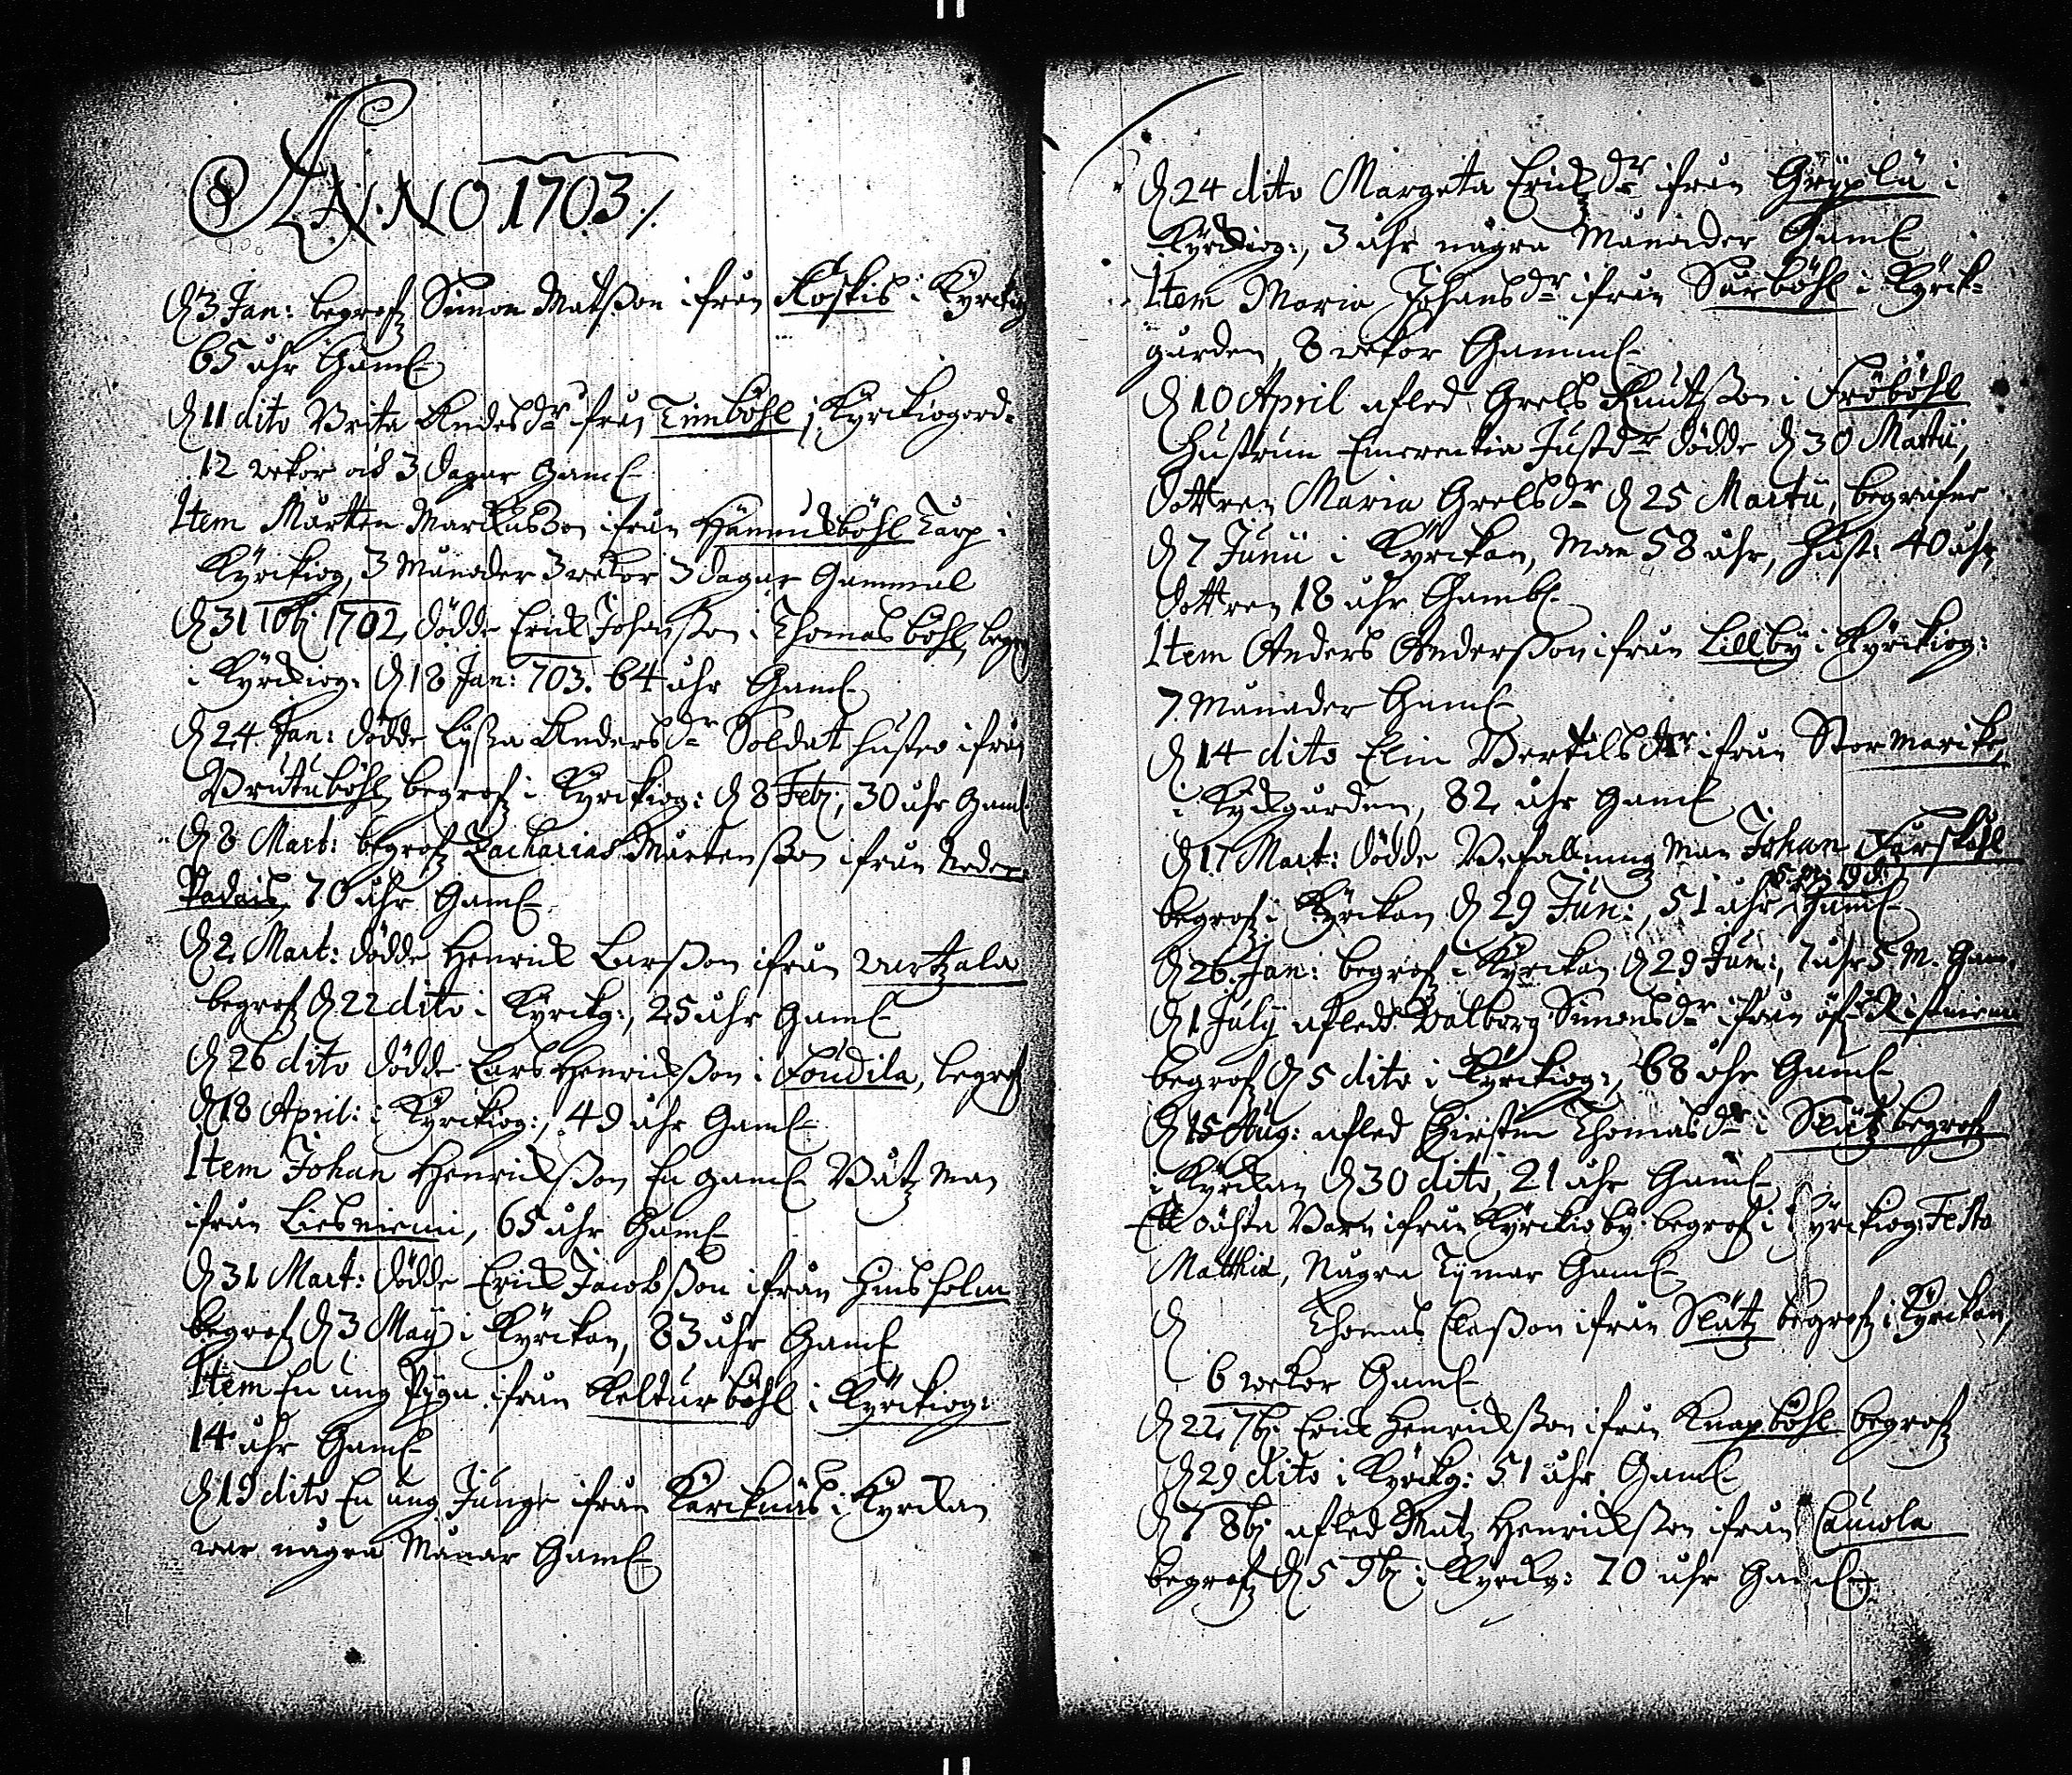 ANNO 1703./.
D. 3 Jan: begrofz Simon Matsson ifrån Koskis i Kyrckg
65 åhr Gaml
D. 11 dito Brita Andersdr ifrån Timböhl i Kyrckiogord
12 wekor och 3 dagar Gaml
Item Mårten Markusson ifrån Hannusböhl Torp i
Kyrckiog, 3 Månader 3 wekor 3 dagar Gammal
D. 31 10bj 1702, dödde Erick Johansson i Thomasböhl, begr
i Kyrckiog: D. 18 Jan: 703. 64 åhr Gaml
D. 24 Jan: dödde Lyssa Andersdr Soldat hustro ifrån
Brutuböhl, begrofz i Kyrckiog: D. 8 Feb, 30 åhr Gaml
D. 8 Mart: begrofz Zacharias Mårtensson ifrån Neder
Padais, 70 åhr Gaml
D. 2 Mart: dödde Henrick Larsson ifrån Vartzala
begrof D. 22 dito i Kyrckg:, 25 åhr Gaml
D. 26 dito dödde Lars Henricksson i Föudila, begrof
D. 18 April: i Kyrckiog:, 49 åhr Gaml
Item Johan Henricksson En gaml Båtzman
ifrån Liesniemi, 65 åhr Gaml
D. 31 Mart: dödde Erick Jacobsson ifrån Hmsholm
begrof D. 3 Maij i Kyrckan, 83 åhr Gaml
Item En ung Piga ifrån Kelturböhl i Kyrckiog:
14 åhr Gaml
D. 19 dito En ung Junge ifrån Karcknäs i Kyrckan
war några Månar Gaml
D. 24 dito Margeta Ericksdr ifrån Gryplä i
Kyrckiog:, 3 åhr några Månader Gaml
Item Maria Johansdr ifrån Surböhl i Kyrck=
gården, 8 wekor Gamml
D. 10 April afled Grels Knutsson i Fröböhl
Hustrun Emerentia Justdr dödde D. 30 Martii,
dottren Maria Grelsdr D. 25 Martii, begrafne
D. 7 Junii i Kyrckan, Man 58 åhr, Hust: 40 åhr,
dottren 18 åhr Gambl
Item Anders Andersson ifrån Lillby i Kyrckiog:
7 Månader Gaml
D. 14 dito Elin Bertilsdtr ifrån Stor marike,
i Kyrkgården, 82 åhr Gaml
D. 17 Mart: dödde Befallningman Johan Forsköhl
begrof i Kyrckan D. 29 Jun:, 51 åhr Gaml
D. 26 Jan: begrof i Kyrckan D. 29 Jun:, 7 åhr 5 M. Gam.
D. 1 July afledd Walborg Simonsdr ifrån öfr Ristniemi
begrof D. 5 dito i Kyrckiog:, 68 åhr Gaml
D. 15 Aug: afled Kirstin Thomasdr i Slätz begrofz
i Kyrckan D. 30 dito, 21 åhr Gaml
Ett oächta Barn ifrån Kyrckio by begrof i Kyrckiog: Festo
Matthiæ, Några Tymar Gaml
D. Thomas Clesson ifrån Slätz begrofz i Kyrckan,
6 wekor Gaml
D. 22 7bj Erick Henricksson ifrån Knapböhl begrofz
D. 29 dito i Kyrckg: 51 åhr Gaml
D. 7 8bj afled Matz Henricksson ifrån Lauvola
begrof D. 5 9bj i Kyrckg: 70 åhr Gaml